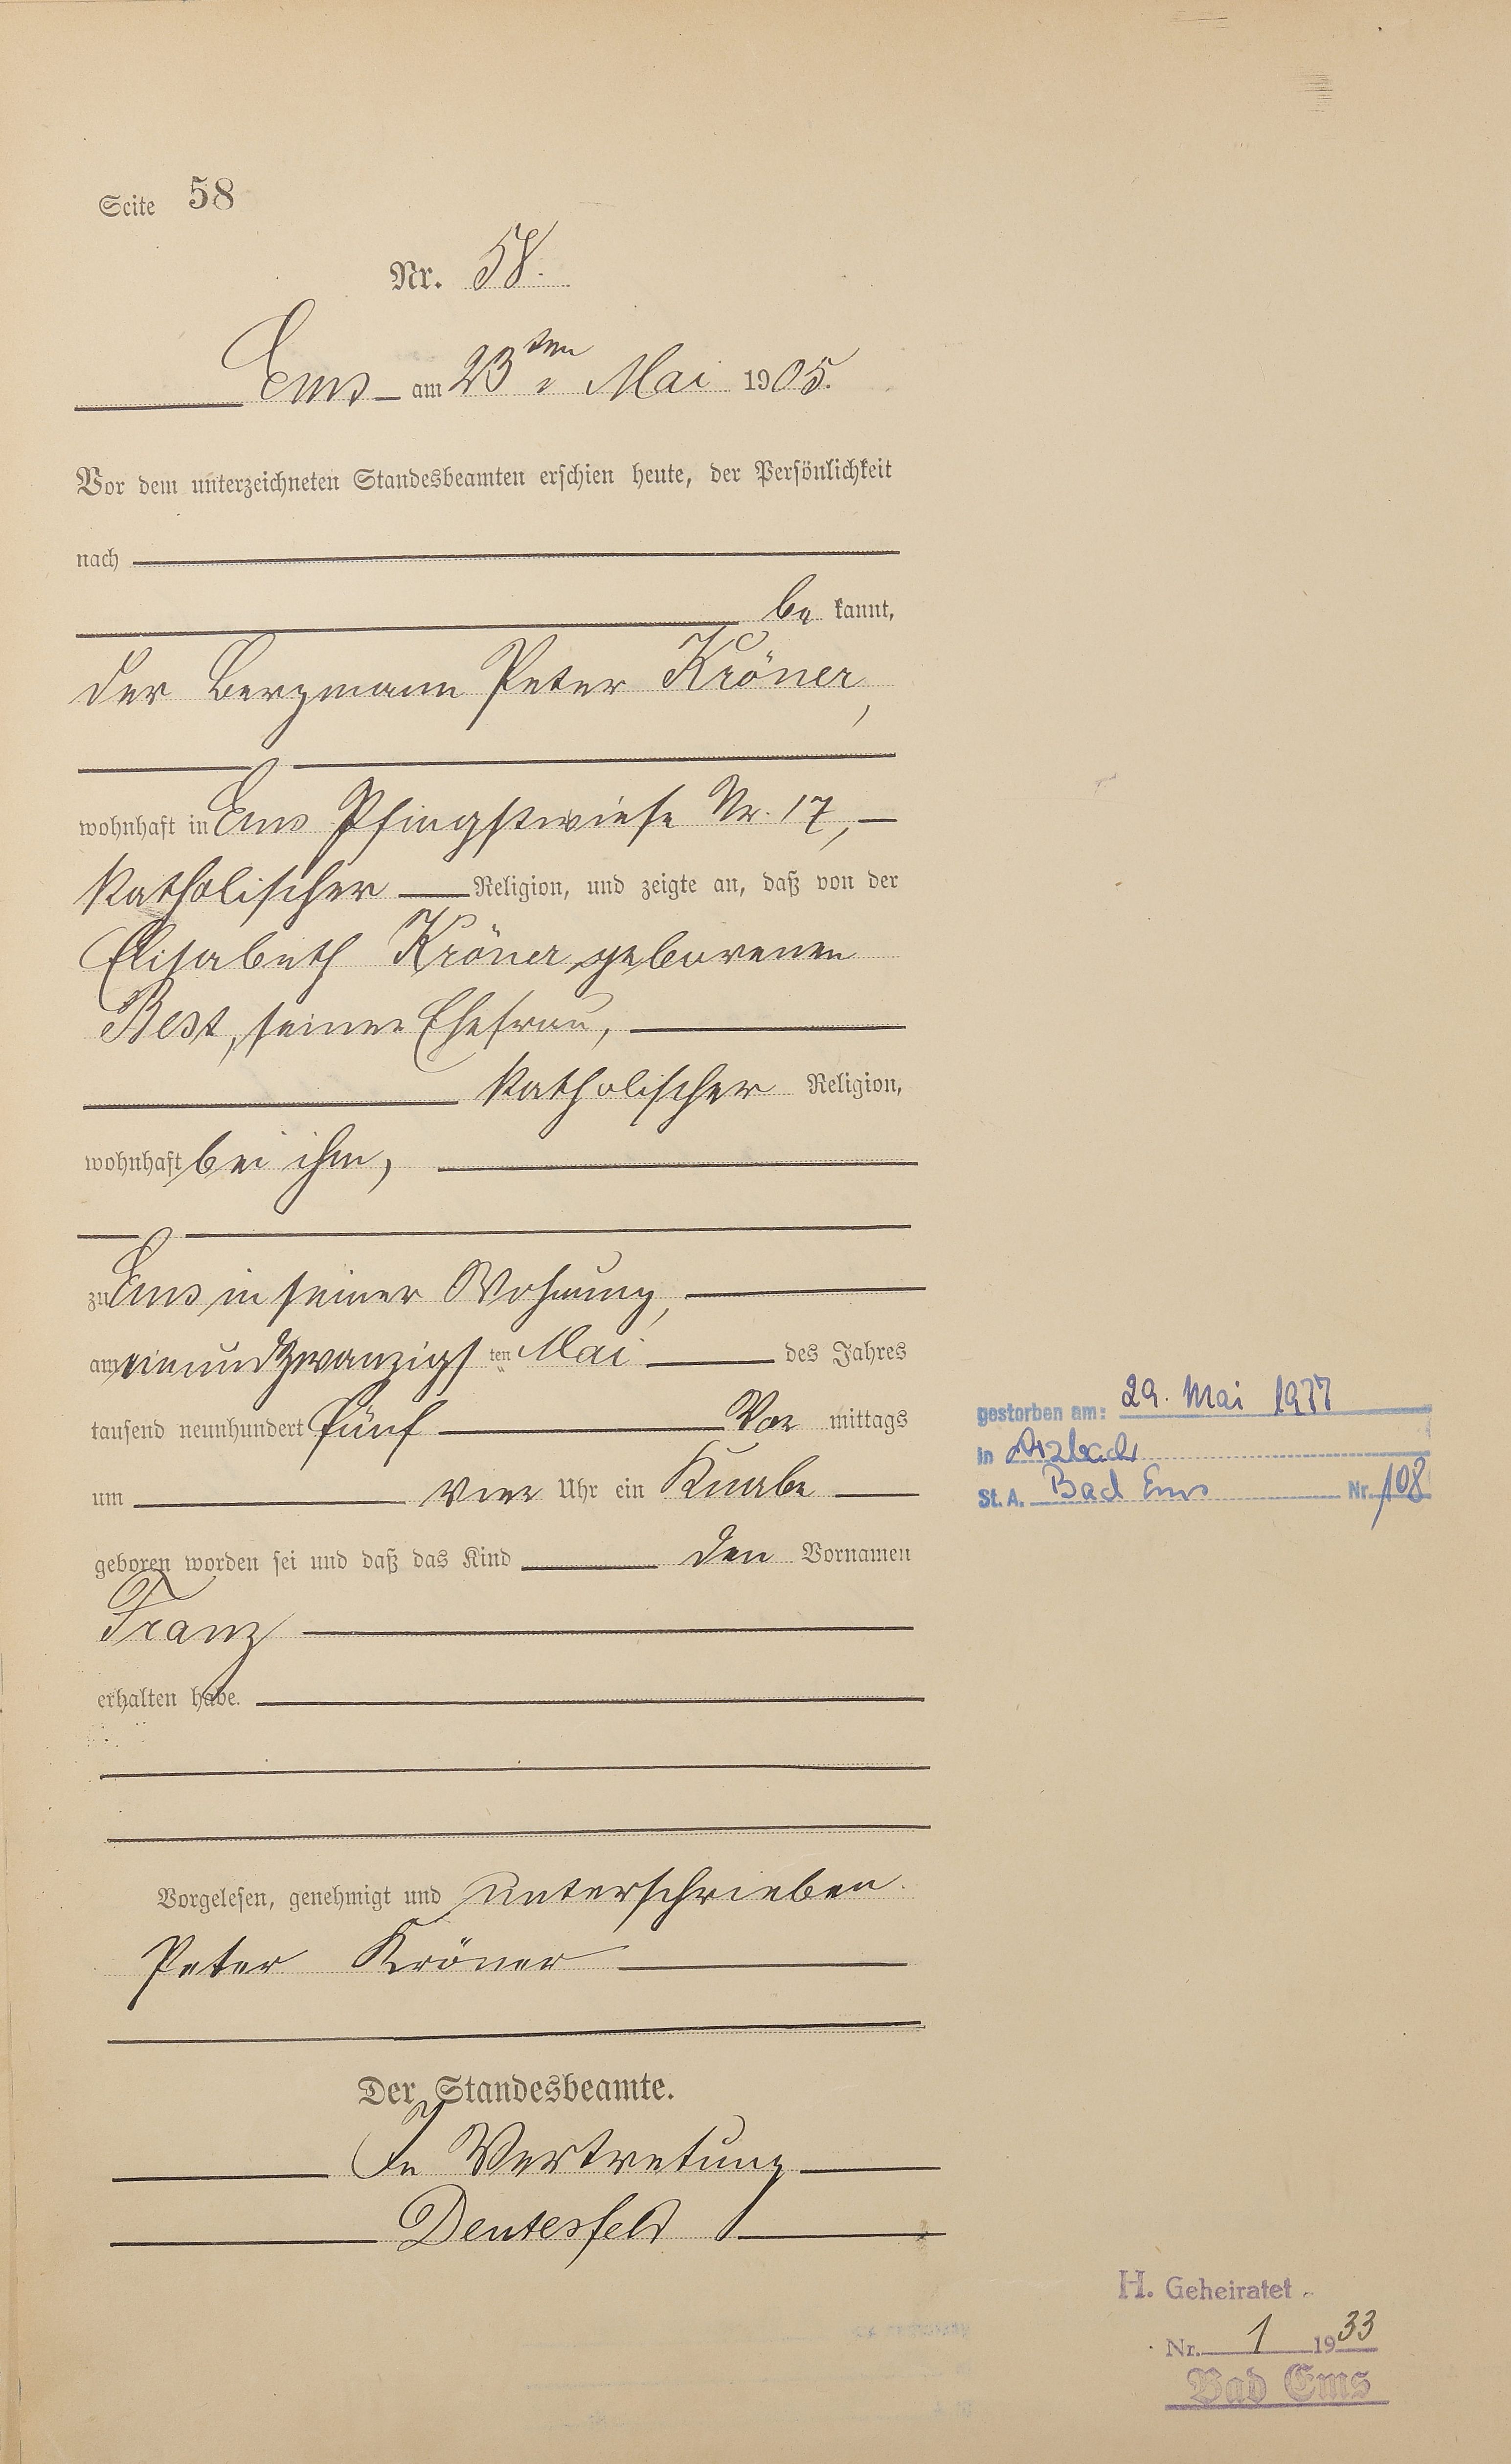 Seite 58
Nr. 58.
Ems am 23ten Mai 1905.
Vor dem unterzeichneten Standesbeamten erschien heute, der Persönlichkeit
nach
be kannt,
der Bergmann Peter Kröner,
wohnhaft in Ems Pfingstwiese Nr. 17,
katholischer Religion, und zeigte an, daß von der
Elisabeth Kröner geborenen
Best, seiner Ehefrau,
katholischer Religion,
wohnhaft bei ihm,
zu Ems in seiner Wohnung,
am einundzwanzigsten Mai des Jahres
tausend neunhundert fünf Vor mittags
um vier Uhr ein Knabe
geboren worden sei und daß das Kind den Vornamen
Franz
erhalten habe.
Vorgelesen, genehmigt und unterschrieben.
Peter Kröner
Der Standesbeamte.
In Vertretung
Deutesfeld
gestorben am: 29. Mai 1977
in Arzbach
St. A. Bad Ems Nr. 108
H. Geheiratet
Nr. 1 1933
Bad Ems